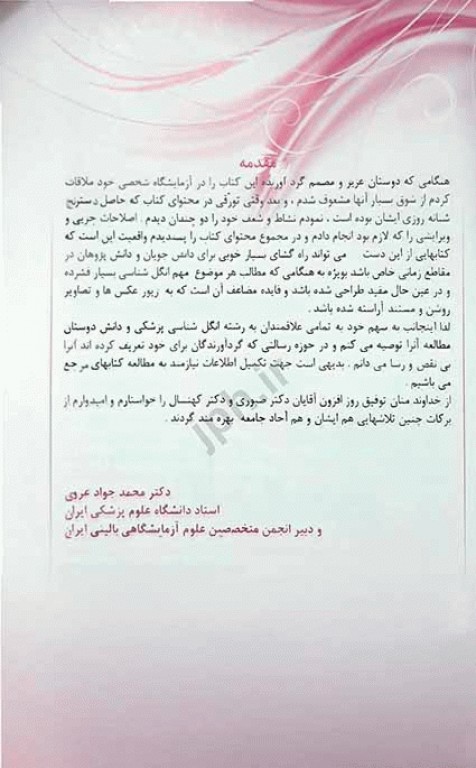 مقدمه
هنگامی که دوستان عزیز و مصمم گرد آورنده این کتاب را در آزمایشگاه شخصی خود ملاقات
کردم از شوق بسیار آنها مشعوف شدم ، و بعد وقتی تورقی در محتوای کتاب که حاصل دسترنج
شبانه روزی ایشان بوده است ، نمودم نشاط و شعف خود را دو چندان دیدم . اصلاحات جزیی و
ویرایشی را که لازم بود انجام دادم و در مجموع محتوای کتاب را پسندیدم واقعیت این است که
کتابهایی از این دست می تواند راه گشای بسیار خوبی برای دانش جویان و دانش پژوهان در
مقاطع زمانی خاص باشد بویژه به هنگامی که مطالب هر موضوع مهم انگل شناسی بسیار فشرده
و در عین حال مفید طراحی شده باشد و فایده مضاعف آن است که به زیور عکس ها و تصاویر
روشن و مستند آراسته شده باشد .
لذا اینجانب به سهم خود به تمامی علاقمندان به رشته انگل شناسی پزشکی و دانش دوستان
مطالعه آنرا توصیه می کنم و در حوزه رسالتی که گردآورندگان برای خود تعریف کرده اند آنرا
بی نقص و رسا می دانم . بدیهی است جهت تکمیل اطلاعات نیازمند به مطالعه کتابهای مرجع
می باشیم .
از خداوند منان توفیق روز افزون آقایان دکتر صبوری و دکتر کهنسال را خواستارم و امیدوارم از
برکات چنین تلاشهایی هم ایشان و هم آحاد جامعه بهره مند گردند .
دکتر محمد جواد غروی
استاد دانشگاه علوم پزشکی ایران
و دبیر انجمن متخصصین علوم آزمایشگاهی بالینی ایران
jph.ir